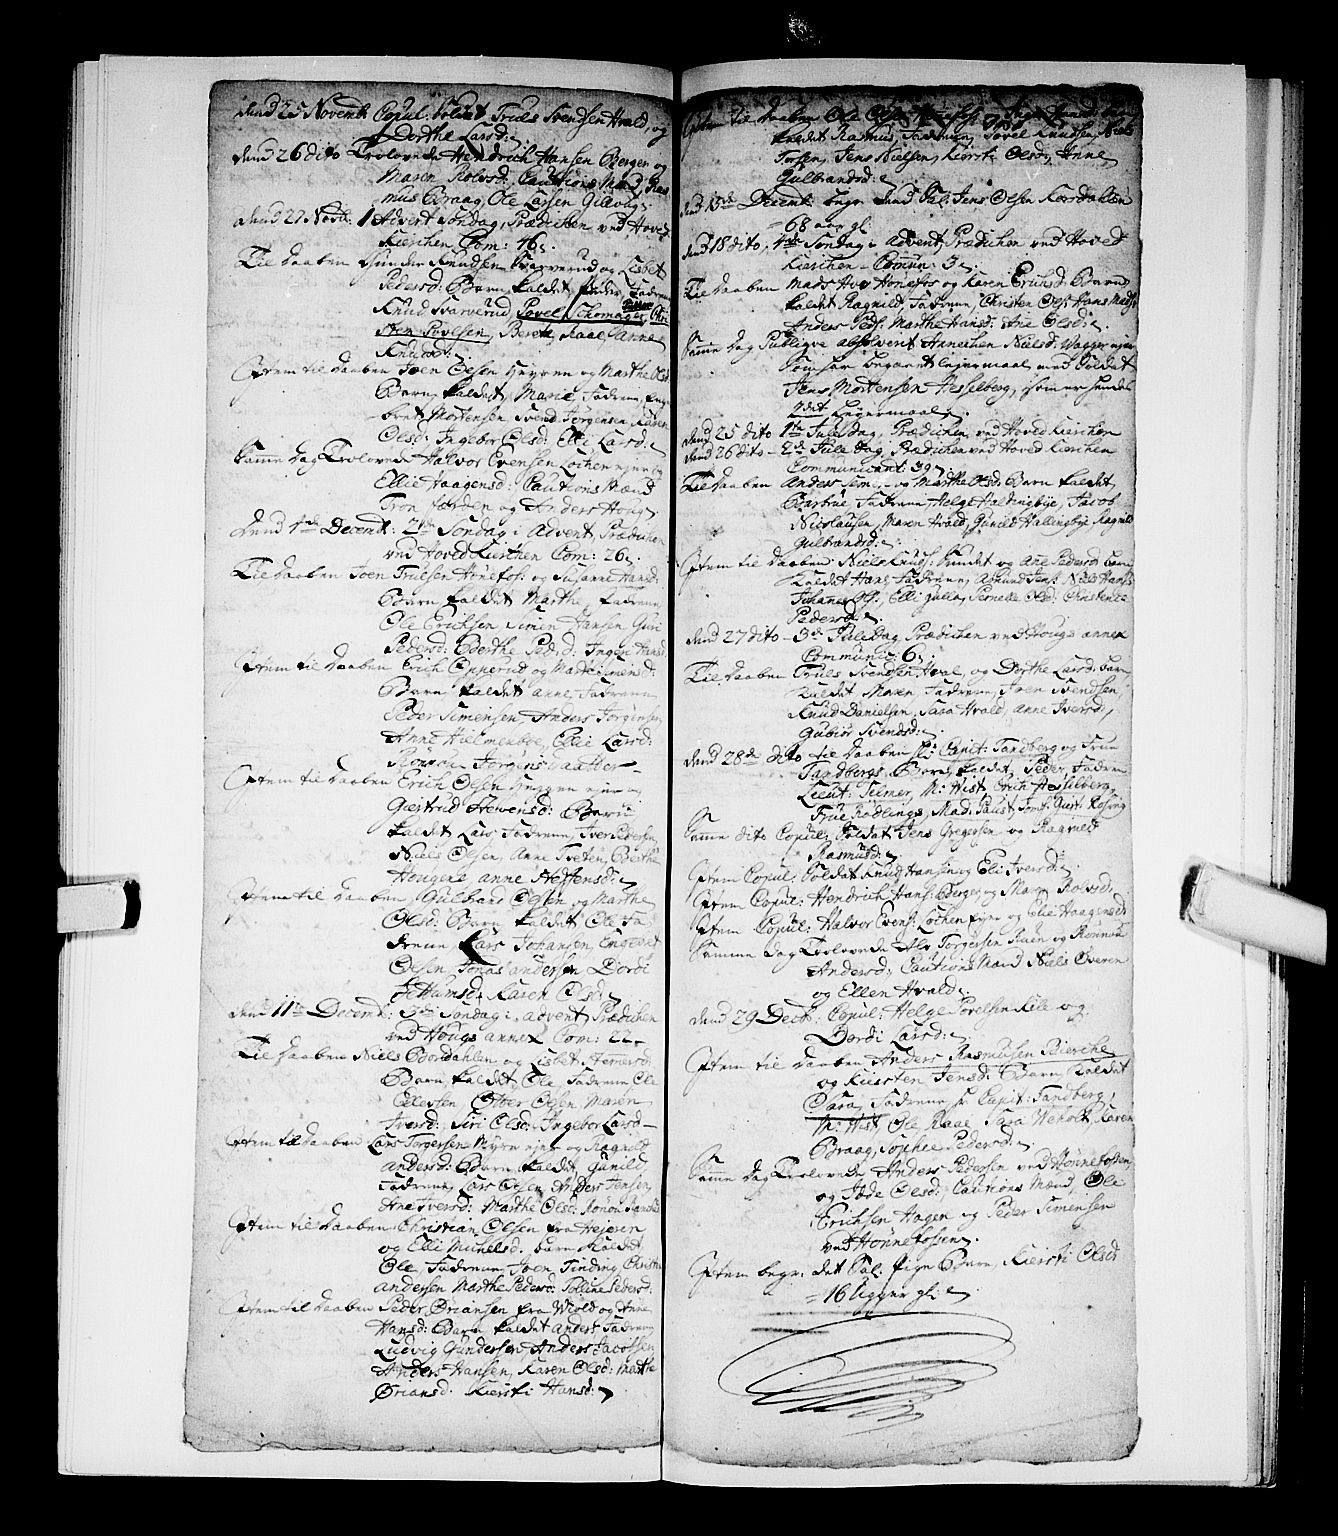 Dend 25 Novemb: Copul. Soldat Truels Svendsen Hvald, og
Dorthe Larsd:
Dend 26 dito Trolovede Hendrich Hansen Bergen og
Maren Rolvsd, Cautions Mænd, Ras
mus Braag, Ole Larsen
Dend 27 Novb: 1 Advent Søndag, Prædichen ved Hoved
Kierchen Com: 16.
Til Daaben Gunder Knudsen Svarverud og Lisbet
Pedersd: Barn, kaldet Peder, Fadrene
Knud Svarverud, Povel Schomager, Chri
sten Povelsen, Berete Raae, Anne
Knudsd:
Item til Daaben Joen Olsen Heggen og Marthe Olsd:
Barn, kaldet, Marie, Fadrene, Enge
bret Mortensen Svend Jørgensen, Karen
Olsd: Ingebor Olsd: Elli Larsd:
Samme Dag Trolovede Halvor Evensen Lochen ejer og
Ellie Haagensd: Cautions Mænd
Tron Jørden og Anders Houg.
Dend 4de Decemb: 2den Søndag i Advent Prædichen
ved Hoved Kierchen Com: 26.
Til Daaben Joen Truelsen Hønefos: og Susanne Hansd:
Barn kaldet Marthe, Fadrene,
Ole Erichsen Simen Hansen Guri
Pedersd: Berthe Ped:d: Inger Hansd:
Item til Daaben Erich Opperud og Marte Simensd:
Barn kaldet Anne, Fadrene
Peder Simensen, Anders Jørgensen,
Anne Hilmenboe, Elie Larsd:
Rønnou Jørgens Daatter
Item til Daaben Erich Olsen Heggen ejer og
Giertrud Stevensd: Barn
kaldet Lars, Fadrene, Iver Pedersen
Niels Olsen, Anne Tveten, Berthe
Hougene Anne Steffensd:
Item til Daaben Gulbrand Olsen og Marthe
Olsd: Barn, kaldet Ole Fa
drene Lars Johansen, Engebret
Olsen Jonas Andersen Dordi
Karen Olsd:
Dend 11te Decemb: 3die Søndag i Advent, Prædichen
ved Hougs annex Com: 22.
Til Daaben Niels Bordahlen og Lisbet
Barn, kaldet, Ole Fadrene Ole
Ellefsen Olber Olsen Maren
Iversd: Siri Olsd: Ingebor Larsd
Item til Daaben Lars Torgersen Myra ejer og Ragnild
Andersd: Barn, kaldet, Gunild,
Fadrene, Lars Olsen, Anders Jensen,
Ane Iversd: Marthe Olsd: Rønou
Item til Daaben Christian Olsen fra Vejeren
og Elli Michelsd. barn kaldet
Ole, Fadrene, Joen Finding, Christen
Andersen Marthe Pedersd: Tolline Pedersd.
Item til Daaben Peder Ørjansen fra Wiold og Anne
Hansd: Barn kaldet Anders Fadrene
Ludvig Gundersen Anders Jacobsen
Anders Hansen, Karen Olsd: Marthe
Ørjansd. Kiersti Hansd:
Item til Daaben Ole Olsen
kaldet Rasmus, Fadrene, Povel Knudsen, Niels
Torsen, Jens Nielsen, Kiersti Olsd, Anne
Gulbrandsd:
Dend 15de Decemb: begr: dend Sal: Jens Olsen Korsdallen
= 68 aar gl:
Dend 18 dito, 4de Søndag i Advent, Prædichen ved Hoved
Kierchen Commun: 3.
Til Daaben Mads Hvi Hønefos og Karen Erichsd: Barn
kaldet Ragnild Fadrene, Christen Ols: Hans Mads:
Anders Peds: Marthe Hansd: Ane Olsd:
Samme Dag Publiqve absolvert Annechen Nielsd: Wagger ejer
Som har begaaet Lejermaal med Soldat
Jens Mortensen Hesselberg, som er hendes
3det Lejermaal.
Dend 25 dito 1te Jule Dag, Prædichen ved Hoved Kierchen
Dend 26 dito 2de Jule Dag, Prædichen ved Hoved Kierchen
Communicant: 39
Til Daaben Anders og Marthe Olsd: Barn kaldet,
Barbrue Fadrene, Helge Hallingbye, Jacob
Nicolausen, Maren Hvald, Gunild Hallingbye Ragnild
Gulbrandsd:
Item til Daaben Niels Knuds: Hundet og Ane Pedersd barn
kaldet Hans Fadrene, Asmund Jens: Niels Hans:
Johanes Ols:, Elli Julla, Pernelle Olsd: Christense
Pedersd:
Dend 27 dito 3de Jule Dag Prædichen ved Hougs annex
Communic: 6.
Til Daaben Truls Svendsen Hval, og Dorthe Larsd: barn
kaldet Maren Fadrene, Joen Svendsen,
Knud Danielsen, Sara Hvald, Anne Iversd,
Gubiør Svendsd:
Dend 28de dito til Daaben Hr: Capit: Tandberg og Frue
Tandbergs Barn, kaldet, Peder, Fadrene
Lieut: Telmer, Mr: Wist, Erich Hesselberg,
Frue Kødlings, Mad: Paust, Jomf: Giert: Kolsing
Samme dito Copul: Soldat Jens Gregersen og Ragnild
Rasmusd:
Item Copul: Soldat Knud Hansen og Eli Iversd:
Item Copul: Hendrich Hans: Berge, og Maren Rolvsd:
Item Copul: Halvor Evens: Lochen ejer og Elie Haagensd:
Samme Dag Trolovede Alv Torgersen Ruen og Rønnou
Andersd: Cautions Mænd Niels Bveren
og Ellen Hvald:
Dend 29 Decb: Copul: Helge Povelsen Kile og
Dordi Larsd:
Item til Daaben Anders Rasmusen Bierche
og Kiersten Jensd: Barn, kaldet
Sara, Fadrene Hr Capit: Tandberg,
Mr: Wist, Ole Raae, Sara Weholt, Karen
Braag, Sophie Pedersd:
Samme Dag Trolovede Anders Pedersen ved Hønnefossen,
og Jøde Olsd: Cautions Mænd, Ole
Erichsen Hagen og Peder Simensen
ved Hønnefossen.
Item begr: det Sal: Pige Barn, Kiersti Olsd
= 16 Ugger gl: